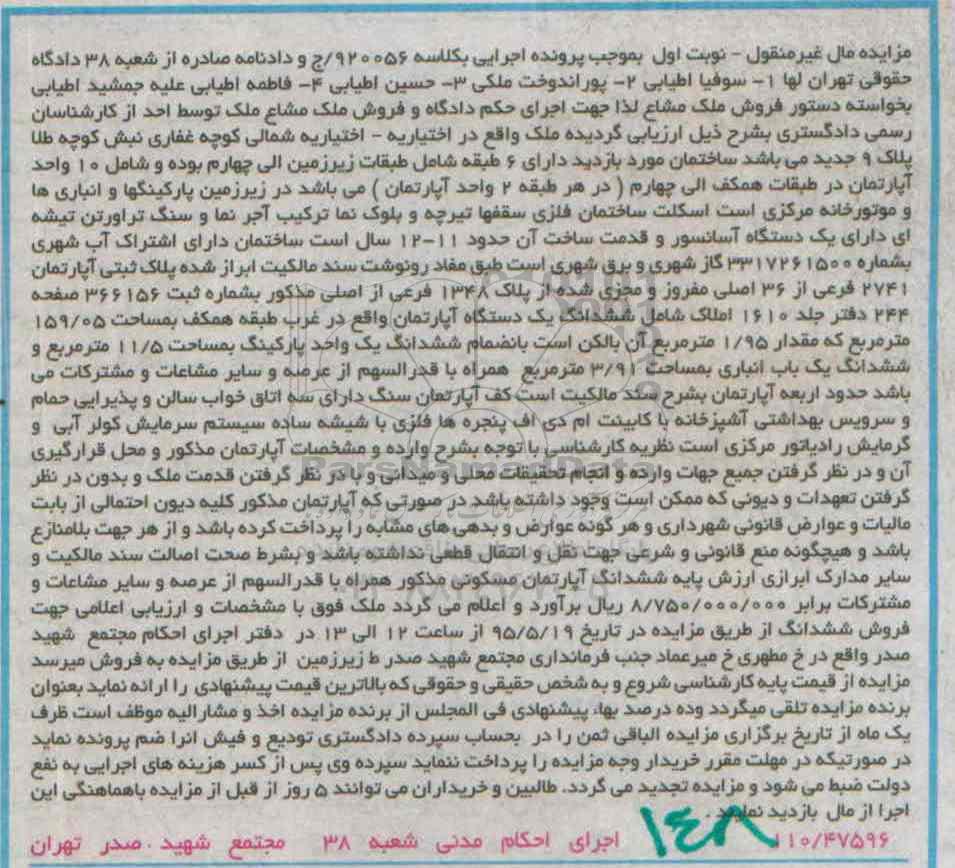 مزایده مال غیرمنقول - نوبت اول بموجب پرونده اجرایی بکلاسه ۹۲۰۰۵۶/ج و دادنامه صادره از شعبه ۳۸ دادگاه
حقوقی تهران لها ۱- سوفیا اطیابی ۲- پوراندوخت ملکی ۳- حسین اطیابی ۴- فاطمه اطیابی علیه جمشید اطیابی
بخواسته دستور فروش ملک مشاع لذا جهت اجرای حکم دادگاه و فروش ملک مشاع ملک توسط احد از کارشناسان
رسمی دادگستری بشرح ذیل ارزیابی گردیده ملک واقع در اختیاریه - اختیاریه شمالی کوچه غفاری نبش کوچه طلا
پلاک ۹ جدید می باشد ساختمان مورد بازدید دارای ۶ طبقه شامل طبقات زیرزمین الی چهارم بوده و شامل ۱۰ واحد
آپارتمان در طبقات همکف الی چهارم ( در هر طبقه ۲ واحد آپارتمان ) می باشد در زیرزمین پارکینگها و انباری ها
و موتورخانه مرکزی است اسکلت ساختمان فلزی سقفها تیرچه و بلوک نما ترکیب آجر نما و سنگ تراورتن تیشه
ای دارای یک دستگاه آسانسور و قدمت ساخت آن حدود ۱۱-۱۲ سال است ساختمان دارای اشتراک آب شهری
بشماره ۳۳۱۷۲۶۱۵۰۰ گاز شهری و برق شهری است طبق مفاد رونوشت سند مالکیت ابراز شده پلاک ثبتی آپارتمان
۲۷۴۱ فرعی از ۳۶ اصلی مفروز و مجزی شده از پلاک ۱۳۴۸ فرعی از اصلی مذکور بشماره ثبت ۳۶۶۱۵۶ صفحه
۲۴۴ دفتر جلد ۱۶۱۰ املاک شامل ششدانگ یک دستگاه آپارتمان واقع در غرب طبقه همکف بمساحت ۱۵۹/۰۵
مترمربع که مقدار ۱/۹۵ مترمربع آن بالکن است بانضمام ششدانگ یک واحد پارکینگ بمساحت ۱۱/۵ مترمربع و
ششدانگ یک باب انباری بمساحت ۳/۹۱ مترمربع همراه با قدرالسهم از عرصه و سایر مشاعات و مشترکات می
باشد حدود اربعه آپارتمان بشرح سند مالکیت است کف آپارتمان سنگ دارای سه اتاق خواب سالن و پذیرایی حمام
و سرویس بهداشتی آشپزخانه با کابینت ام دی اف پنجره ها فلزی با شیشه ساده سیستم سرمایش کولر آبی و
گرمایش رادیاتور مرکزی است نظریه کارشناسی با توجه بشرح وارده و مشخصات آپارتمان مذکور و محل قرارگیری
آن و در نظر گرفتن جمیع جهات وارده و انجام تحقیقات محلی و میدانی و با در نظر گرفتن قدمت ملک و بدون در نظر
گرفتن تعهدات و دیونی که ممکن است وجود داشته باشد در صورتی که آپارتمان مذکور کلیه دیون احتمالی از بابت
مالیات و عوارض قانونی شهرداری و هر گونه عوارض و بدهی های مشابه را پرداخت کرده باشد و از هر جهت بلامنازع
باشد و هیچگونه منع قانونی و شرعی جهت نقل و انتقال قطعی نداشته باشد و بشرط صحت اصالت سند مالکیت و
سایر مدارک ابرازی ارزش پایه ششدانگ آپارتمان مسکونی مذکور همراه با قدرالسهم از عرصه و سایر مشاعات و
مشترکات برابر ۸/۷۵۰/۰۰۰/۰۰۰ ریال برآورد و اعلام می گردد ملک فوق با مشخصات و ارزیابی اعلامی جهت
فروش ششدانگ از طریق مزایده در تاریخ ۹۵/۵/۱۹ از ساعت ۱۲ الی ۱۳ در دفتر اجرای احکام مجتمع شهید
صدر واقع در خ مطهری خ میرعماد جنب فرمانداری مجتمع شهید صدر ط زیرزمین از طریق مزایده به فروش میرسد
مزایده از قیمت پایه کارشناسی شروع و به شخص حقیقی و حقوقی که بالاترین قیمت پیشنهادی را ارائه نماید بعنوان
برنده مزایده تلقی میگردد وده درصد بهاء پیشنهادی فی المجلس از برنده مزایده اخذ و مشارالیه موظف است ظرف
یک ماه از تاریخ برگزاری مزایده الباقی ثمن را در بحساب سپرده دادگستری تودیع و فیش انرا ضم پرونده نماید
در صورتیکه در مهلت مقرر خریدار وجه مزایده را پرداخت ننماید سپرده وی پس از کسر هزینه های اجرایی به نفع
دولت ضبط می شود و مزایده تجدید می گردد. طالبین و خریداران می توانند ۵ روز از قبل از مزایده باهماهنگی این
اجرا از مال بازدید نمایند .
۱۱۰/۴۷۵۹۶ ۱۴۸ اجرای احکام مدنی شعبه ۳۸ مجتمع شهید صدر تهران